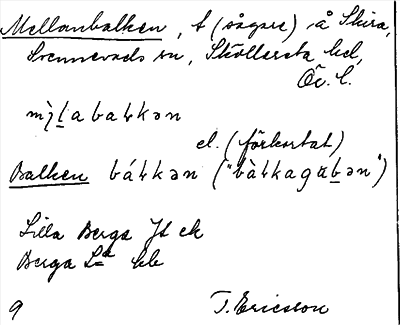 Mellanbalken, t (sågare) å Skira,
Svennevads sn, Sköllersta hd,
Ör. l.
mɪ̀l̠abaɫkən
el. (förkortat)
Balken báɫkən ("bàɫkagʉbən")
Lilla Berga Jt ek
Berga L:a hb
9 T. Ericsson